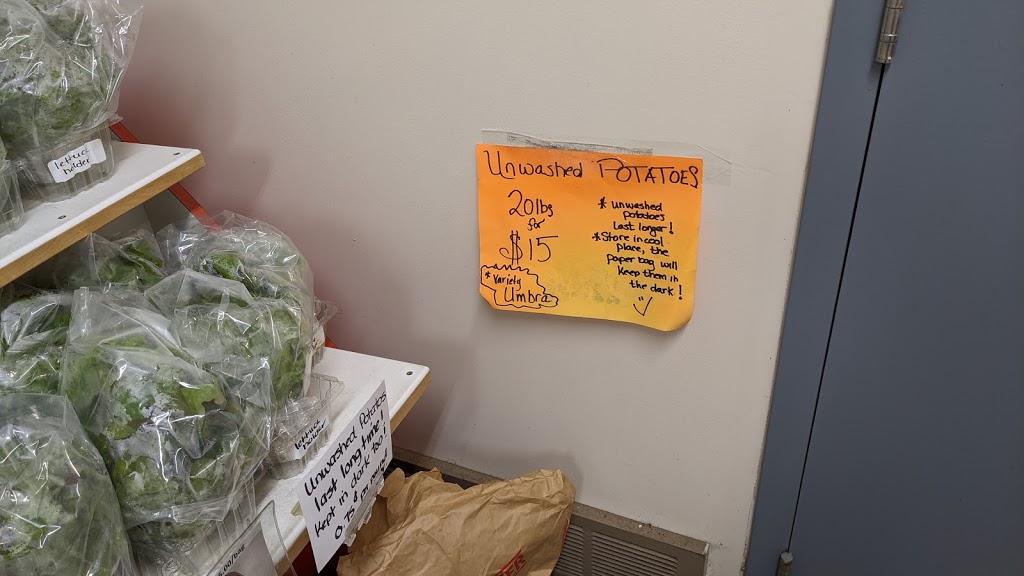 lettuce
holder
Unwashed POTATOES
20lbs
for
$15
* Variety
Umbra
* unwashed
potatoes
last longer!
* Store in cool
place, the
paper bag will
keep them in
the dark!
lettuce
holder
Unwashed Potatoes
last long time!
Kept in dark too!